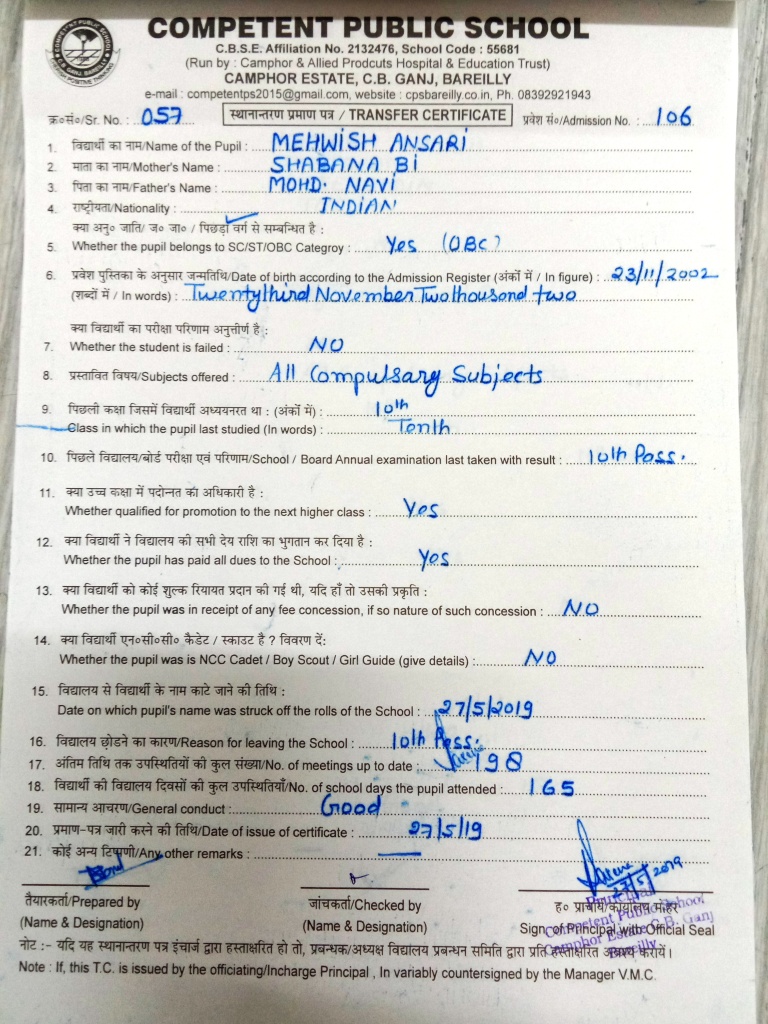 COMPETENT PUBLIC SCHOOL
C.B.S.E. Affiliation No. 2132476, School Code : 55681
(Run by : Camphor & Allied Prodcuts Hospital & Education Trust)
CAMPHOR ESTATE, C.B. GANJ, BAREILLY
e-mail : competentps2015@gmail.com, website : cpsbareilly.co.in, Ph. 08392921943
क्र०सं०/Sr. No. : 057 स्थानान्तरण प्रमाण पत्र / TRANSFER CERTIFICATE प्रवेश सं०/Admission No. : 106
1. विद्यार्थी का नाम/Name of the Pupil : MEHWISH ANSARI
2. माता का नाम/Mother's Name : SHABANA BI
3. पिता का नाम/Father's Name : MOHD. NAVI
4. राष्ट्रीयता/Nationality : INDIAN
क्या अनु० जाति/ ज० जा० / पिछड़ा वर्ग से सम्बन्धित है :
5. Whether the pupil belongs to SC/ST/OBC Categroy : Yes (OBC)
6. प्रवेश पुस्तिका के अनुसार जन्मतिथि/Date of birth according to the Admission Register (अंकों में / In figure) : 23/11/2002
(शब्दों में / In words) : Twentythird November Two thousand two
क्या विद्यार्थी का परीक्षा परिणाम अनुत्तीर्ण है :
7. Whether the student is failed : NO
8. प्रस्तावित विषय/Subjects offered : All Compulsary Subjects
9. पिछली कक्षा जिसमें विद्यार्थी अध्ययनरत था : (अंकों में) : 10th
Class in which the pupil last studied (In words) : Tenth
10. पिछले विद्यालय/बोर्ड परीक्षा एवं परिणाम/School / Board Annual examination last taken with result : 10th Pass.
11. क्या उच्च कक्षा में पदोन्नत का अधिकारी है :
Whether qualified for promotion to the next higher class : Yes
12. क्या विद्यार्थी ने विद्यालय की सभी देय राशि का भुगतान कर दिया है :
Whether the pupil has paid all dues to the School : Yes
13. क्या विद्यार्थी को कोई शुल्क रियायत प्रदान की गई थी, यदि हाँ तो उसकी प्रकृति :
Whether the pupil was in receipt of any fee concession, if so nature of such concession : NO
14. क्या विद्यार्थी एन०सी०सी० कैडेट / स्काउट है ? विवरण दें:
Whether the pupil was is NCC Cadet / Boy Scout / Girl Guide (give details) : NO
15. विद्यालय से विद्यार्थी के नाम काटे जाने की तिथि :
Date on which pupil's name was struck off the rolls of the School : 27/5/2019
16. विद्यालय छोडने का कारण/Reason for leaving the School : 10th Pass.
17. अंतिम तिथि तक उपस्थितियों की कुल संख्या/No. of meetings up to date : 198
18. विद्यार्थी की विद्यालय दिवसों की कुल उपस्थितियाँ/No. of school days the pupil attended : 165
19. सामान्य आचरण/General conduct : Good
20. प्रमाण-पत्र जारी करने की तिथि/Date of issue of certificate : 27/5/19
21. कोई अन्य टिप्पणी/Any other remarks :
27/5/2019
तैयारकर्ता/Prepared by जांचकर्ता/Checked by ह० प्राचार्य/कार्यालय मोहर
Principal
(Name & Designation) (Name & Designation) Sign of Principal with Official Seal
Competent Public School
Camphor Estate C.B. Ganj
Bareilly
नोट :- यदि यह स्थानान्तरण पत्र इंचार्ज द्वारा हस्ताक्षरित हो तो, प्रबन्धक/अध्यक्ष विद्यालय प्रबन्धन समिति द्वारा प्रति हस्ताक्षरित अवश्य करायें।
Note : If, this T.C. is issued by the officiating/Incharge Principal , In variably countersigned by the Manager V.M.C.